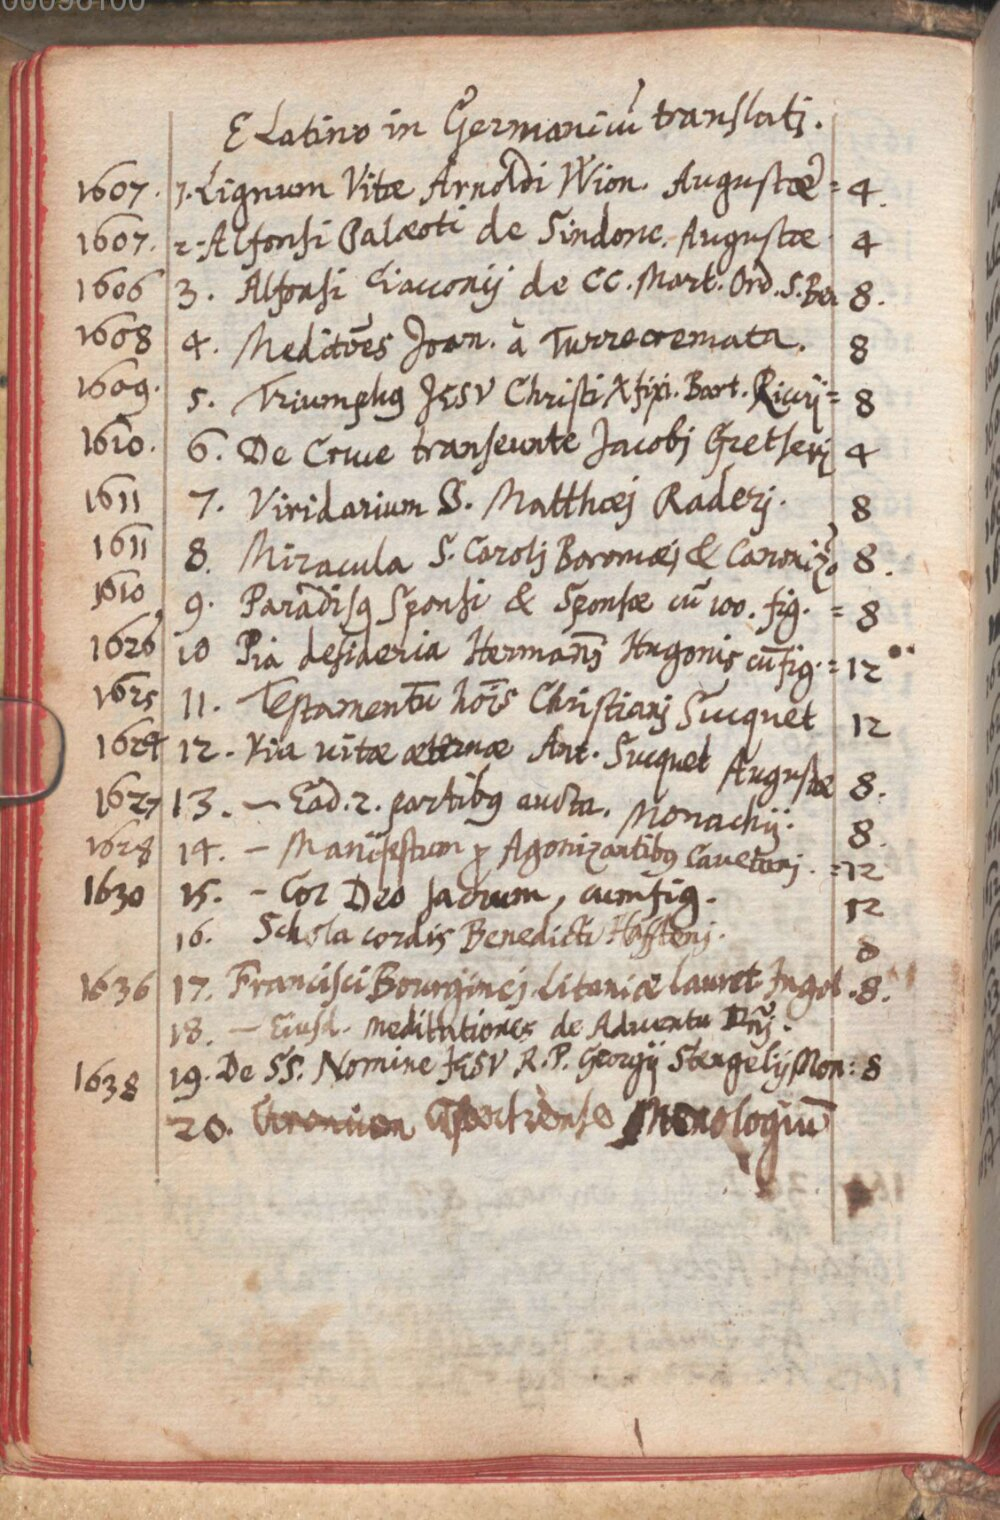 00098100
E Latino in Germanicū translatj.
1607. 1. Lignum Vitæ Arnoldi Wion. Augustæ = 4.
1607. 2. Alfonsi Palæoti de Sindone. Augustæ 4
1606 3. Alfonsi Ciacconij de CC. Mart. Ord. S. Be 8.
1608 4. Meditōes Joan. à Turrecremata. 8
1609. 5. Triumphus JESV Christi Xfixi. Bart. Riccij = 8
1610. 6. De Cruce transeunte Jacobj Gretserj 4
1611 7. Viridarium SS. Matthæj Raderj. 8
1611 8. Miracula S. Carolj Boromæj & Canoniz̄o 8.
1610 9. Paradisus Sponsi & Sponsæ cū 100. fig. = 8
1626 10 Pia desideria Hermanñj Hugonis cū fig. = 12
1625 11. Testamentū hōis Christianj Sucquet 12
1624 12. Via vitæ æternæ Ant. Sucquet Augustæ 8.
1627 13. — Ead. 2. partibus aucta. Monachij. 8.
1628 14. — Manipulum p Agonizantibus Cauetanj. = 12
1630 15. — Cor Deo sacrum, cum fig. 12
16. Schola cordis Benedicti Hafftenj. 8
1636 17. Francisci Bourgincj Litaniæ lauret Ingol. 8.
18. — Eiusd. meditationes de Aduentu Dn̄j.
1638 19. De SS. Nomine JESV R. P. Georgij Stengelij Mon: 8
20. Menologiū